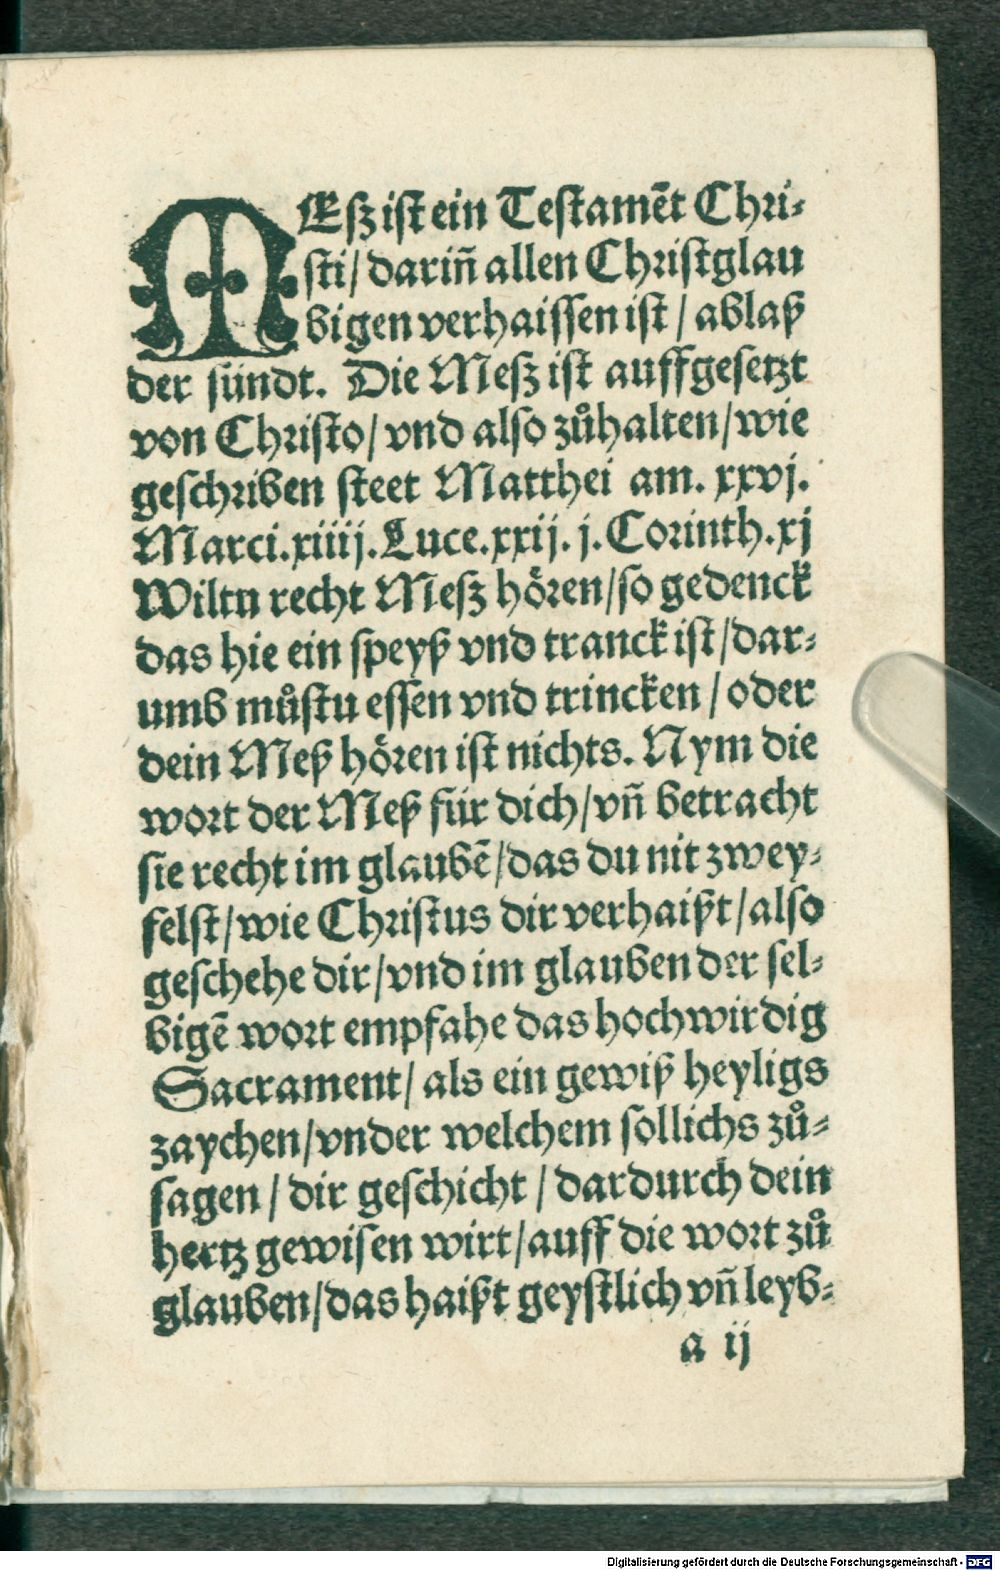 MEſz iſt ein Teſtamẽt Chri⸗
ſti / dariñ allen Chriſtglau
bigen verhaiſſen iſt / ablaß
der ſündt. Die Meſz iſt auffgeſetzt
von Chriſto / vnd alſo zůhalten / wie
geſchriben ſteet Matthei am. xxvj.
Marci.xiiij. Luce.xxij. j. Corinth.xj
Wiltu recht Meſz hören / ſo gedenck
das hie ein ſpeyß vnd tranck iſt / dar⸗
umb můſtu eſſen vnd trincken / oder
dein Meß hören iſt nichts. Nym die
wort der Meß für dich / vñ betracht
ſie recht im glaubẽ / das du nit zwey⸗
felſt / wie Chriſtus dir verhaißt / alſo
geſchehe dir / vnd im glauben der ſel⸗
bigẽ wort empfahe das hochwirdig
Sacrament / als ein gewiß heyligs
zaychen / vnder welchem ſollichs zů⸗
ſagen / dir geſchicht / dardurch dein
hertz gewiſen wirt / auff die wort zů
glauben / das haißt geyſtlich vñ leyb⸗
a ij
Digitalisierung gefördert durch die Deutsche Forschungsgemeinschaft - DFG